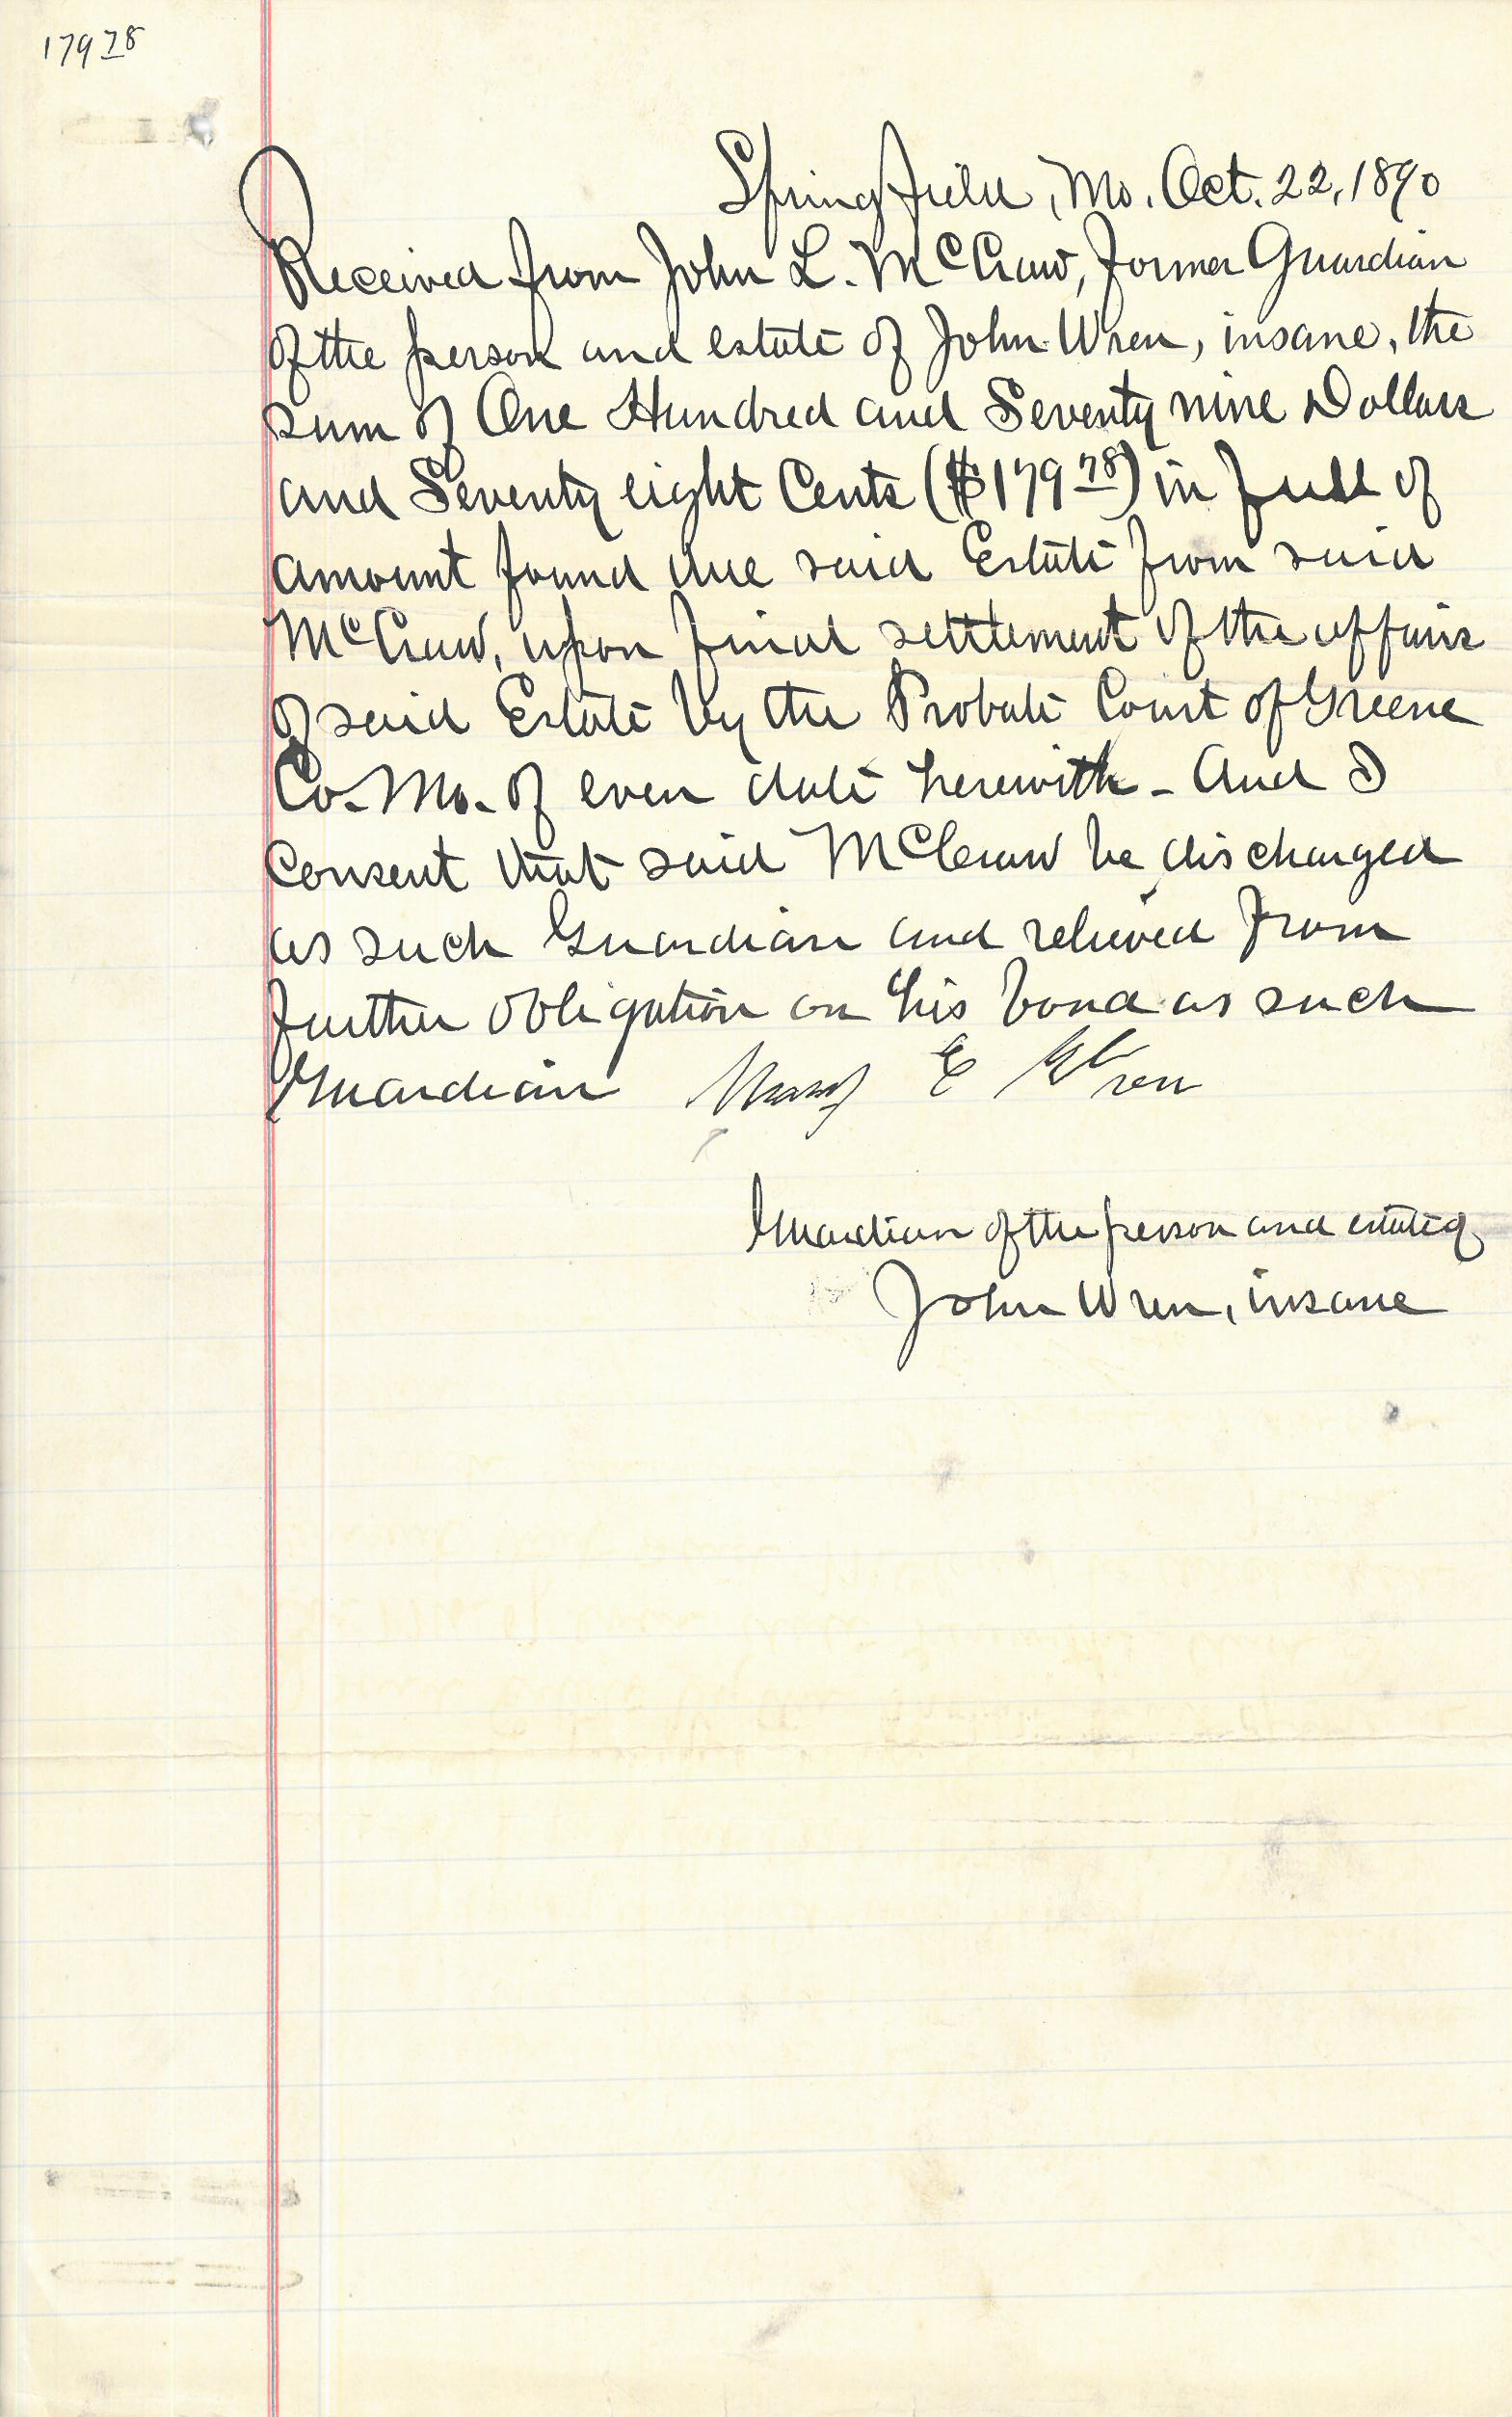 179 78
Springfield, Mo. Oct. 22, 1890
Received from John L. McCraw, former Guardian
of the person and estate of John Wren, insane, the
sum of One Hundred and Seventy nine Dollars
and Seventy eight Cents ($179 78) in full of
amount found due said Estate from said
McCraw, upon final settlement of the affairs
of said Estate by the Probate Court of Greene
Co. Mo. of even date herewith - And I
Consent that said McCraw be discharged
as such Guardian and relieved from
further obligation on his bond as such
Guardian Mary E Wren
Guardian of the person and estate of
John Wren, insane